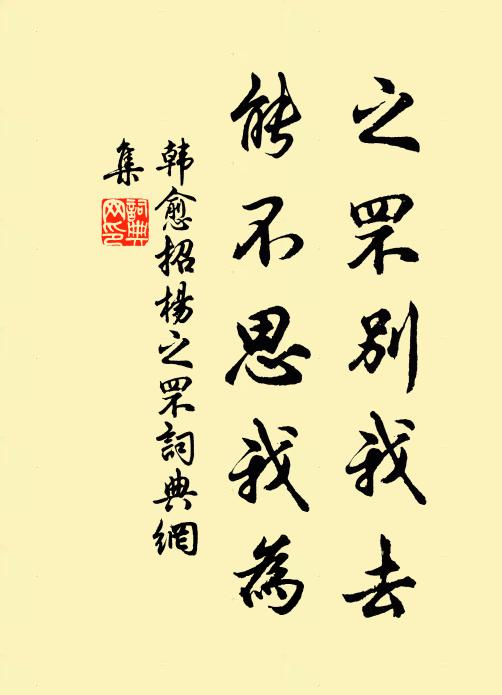 之罘别我去
能不思我為
韩愈招楊之罘詞典網
集
詞典
网印